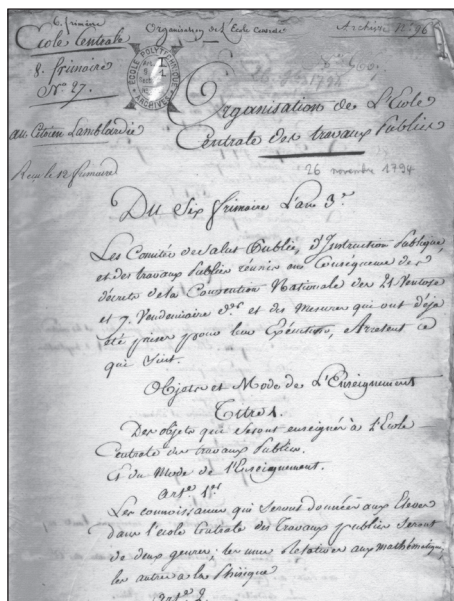 6. frimaire
Ecole Centrale
8. frimaire
N° 27.
au Citoyen Lamblardie
Reçu le 12 frimaire
Organisation de l'Ecole Centrale
Archive
ÉCOLE POLYTECHNIQUE
ARCHIVES
Organisation de L'Ecole
Centrale des travaux Publics
26 novembre 1794
Du Six frimaire L'an 3.e
Les Comités de Salut Public, d'Instruction Publique,
et des travaux Publics réunis en Conséquence des
décrets de la Convention Nationale des 21 Ventose
et 7. Vendemiaire d.ers et des Mesures qui ont déja
été prises pour leur Exécution, Arretent ce
qui Suit.
Objets et Mode de L'Enseignement
Titre 1.
Des objets qui seront enseignés à l'Ecole
Centrale des travaux Publics.
Et du Mode de l'Enseignement.
Art.e 1.er
Les connoissances qui seront données aux Eleves
dans l'école Centrale des Travaux publics seront
de deux genres: les unes Relatives aux mathématiques,
les autres a la Phisique
Art.e 2.